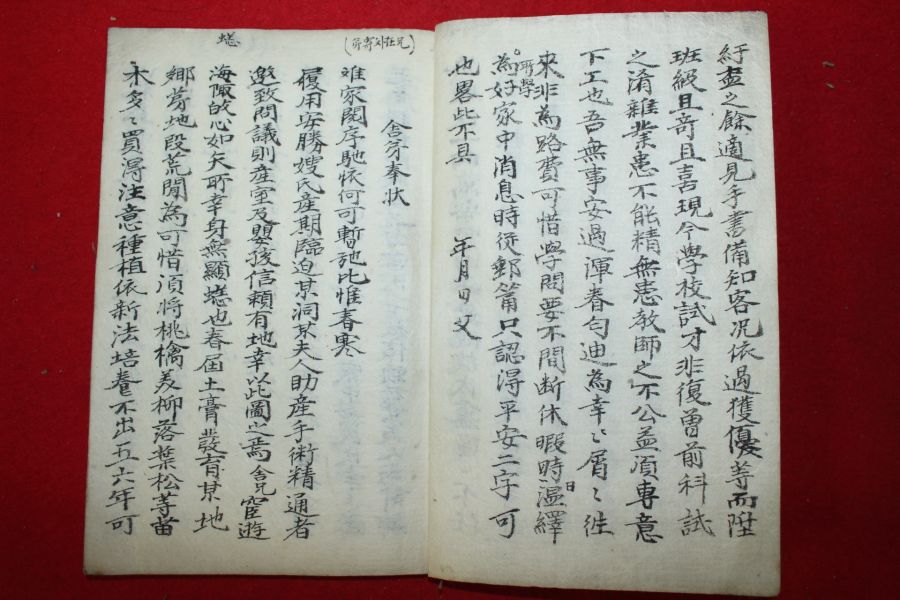 紆盡之餘適見手書備知客況依過獲優等而陞
班級且奇且喜現今學校試才非復曾前科試
之淆雜業患不能精無患教師之不公益須專意
下工也吾無事安過渾眷勻迪為幸〻屑〻往
來非為路費可惜學問要不間断休暇時溫繹
日
所學
為好家中消息時從郵筩只認得平安二字可
也畧此不具
年月日父
(兄在外寄弟)
舍弟奉狀
难家閱序馳依何可暫弛比惟春寒
履用安勝嫂氏產期臨迫某洞某夫人助產手術精通者
邀致問議則產室及嬰孩信賴有地幸以此圖之焉舍兄宦遊
海陬故心如矢所幸身無顯蟋也春届土膏發育某地
蟋
鄉苐地段荒閒為可惜須將桃檎美柳落葉松等苗
木多〻買得注意種植依新法培養不出五六年可